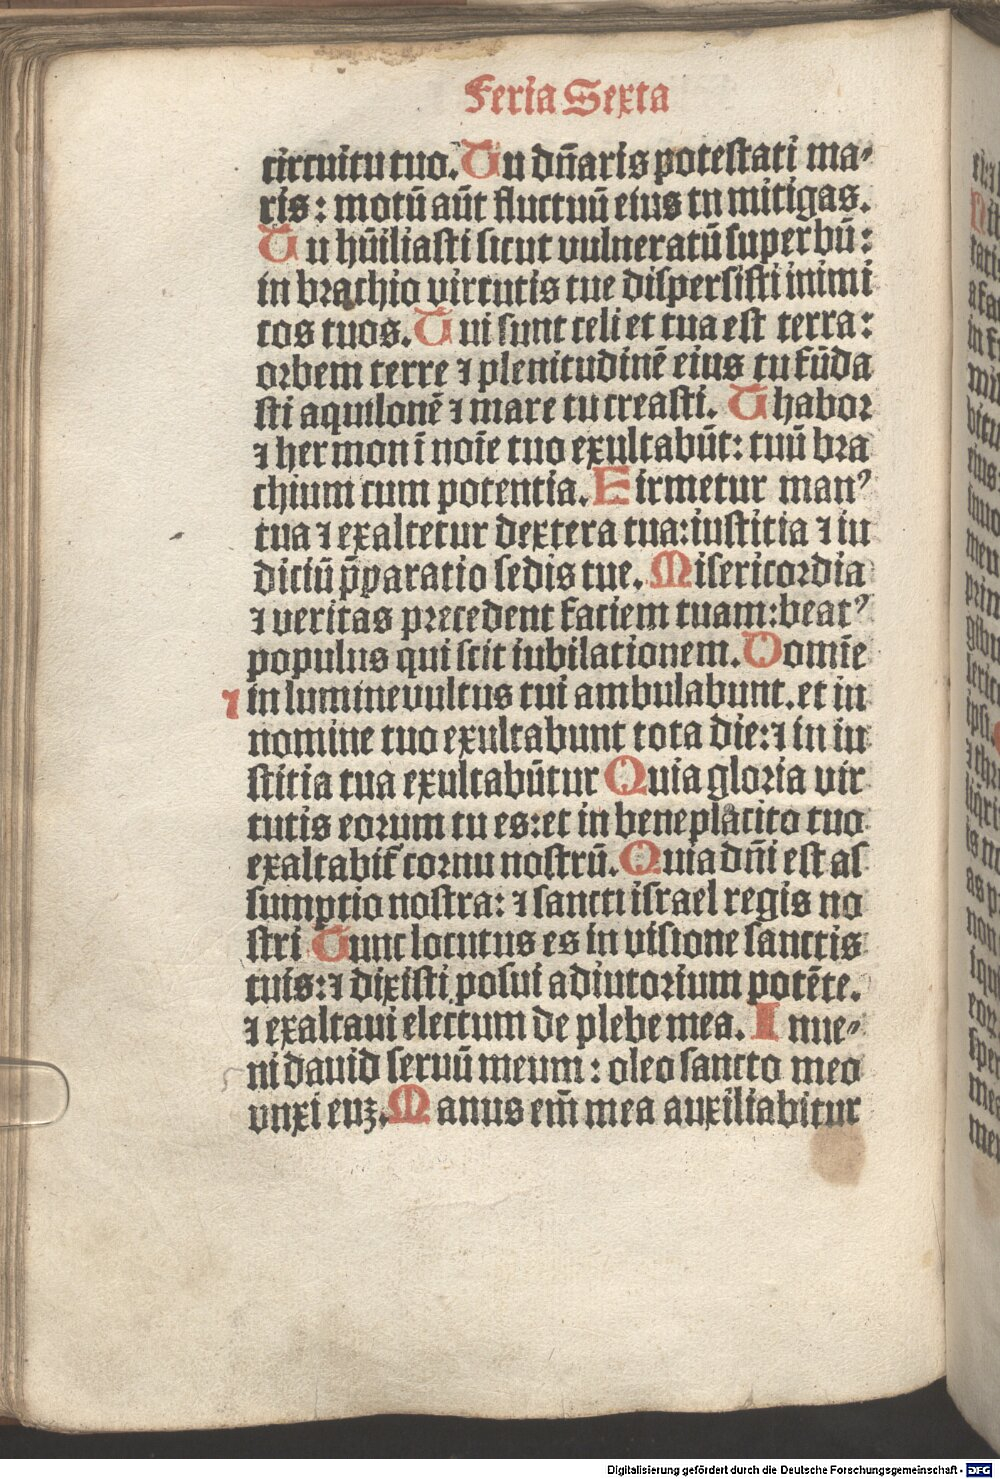 Feria Sexta
circuitu tuo. Tu dn̄aris potestati ma⸗
ris: motū aūt fluctuū eius tu mitigas.
Tu hūiliasti sicut vulneratū superbū:
in brachio virtutis tue dispersisti inimi
cos tuos. Tui sunt celi et tua est terra:
orbem terre ⁊ plenitudinē eius tu fūda
sti aquilonē ⁊ mare tu creasti. Thabor
⁊ hermon ī noīe tuo exultabūt: tuū bra
chium cum potentia. Firmetur manꝰ
tua ⁊ exaltetur dextera tua: iustitia ⁊ iu
diciū p̄paratio sedis tue. Misericordia
⁊ veritas precedent faciem tuam: beatꝰ
populus qui scit iubilationem. Domīe
in lumine vultus tui ambulabunt. et in
nomine tuo exultabunt tota die: ⁊ in iu
stitia tua exultabūtur Quia gloria vir
tutis eorum tu es: et in beneplacito tuo
exaltabit̄ cornu nostrū. Quia dn̄i est as
sumptio nostra: ⁊ sancti israel regis no
stri Tunc locutus es in visione sanctis
tuis: ⁊ dixisti posui adiutorium potēte.
⁊ exaltaui electum de plebe mea. Inue⸗
ni dauid seruū meum: oleo sancto meo
vnxi euꝫ. Manus em̄ mea auxiliabitur
Digitalisierung gefördert durch die Deutsche Forschungsgemeinschaft - DFG